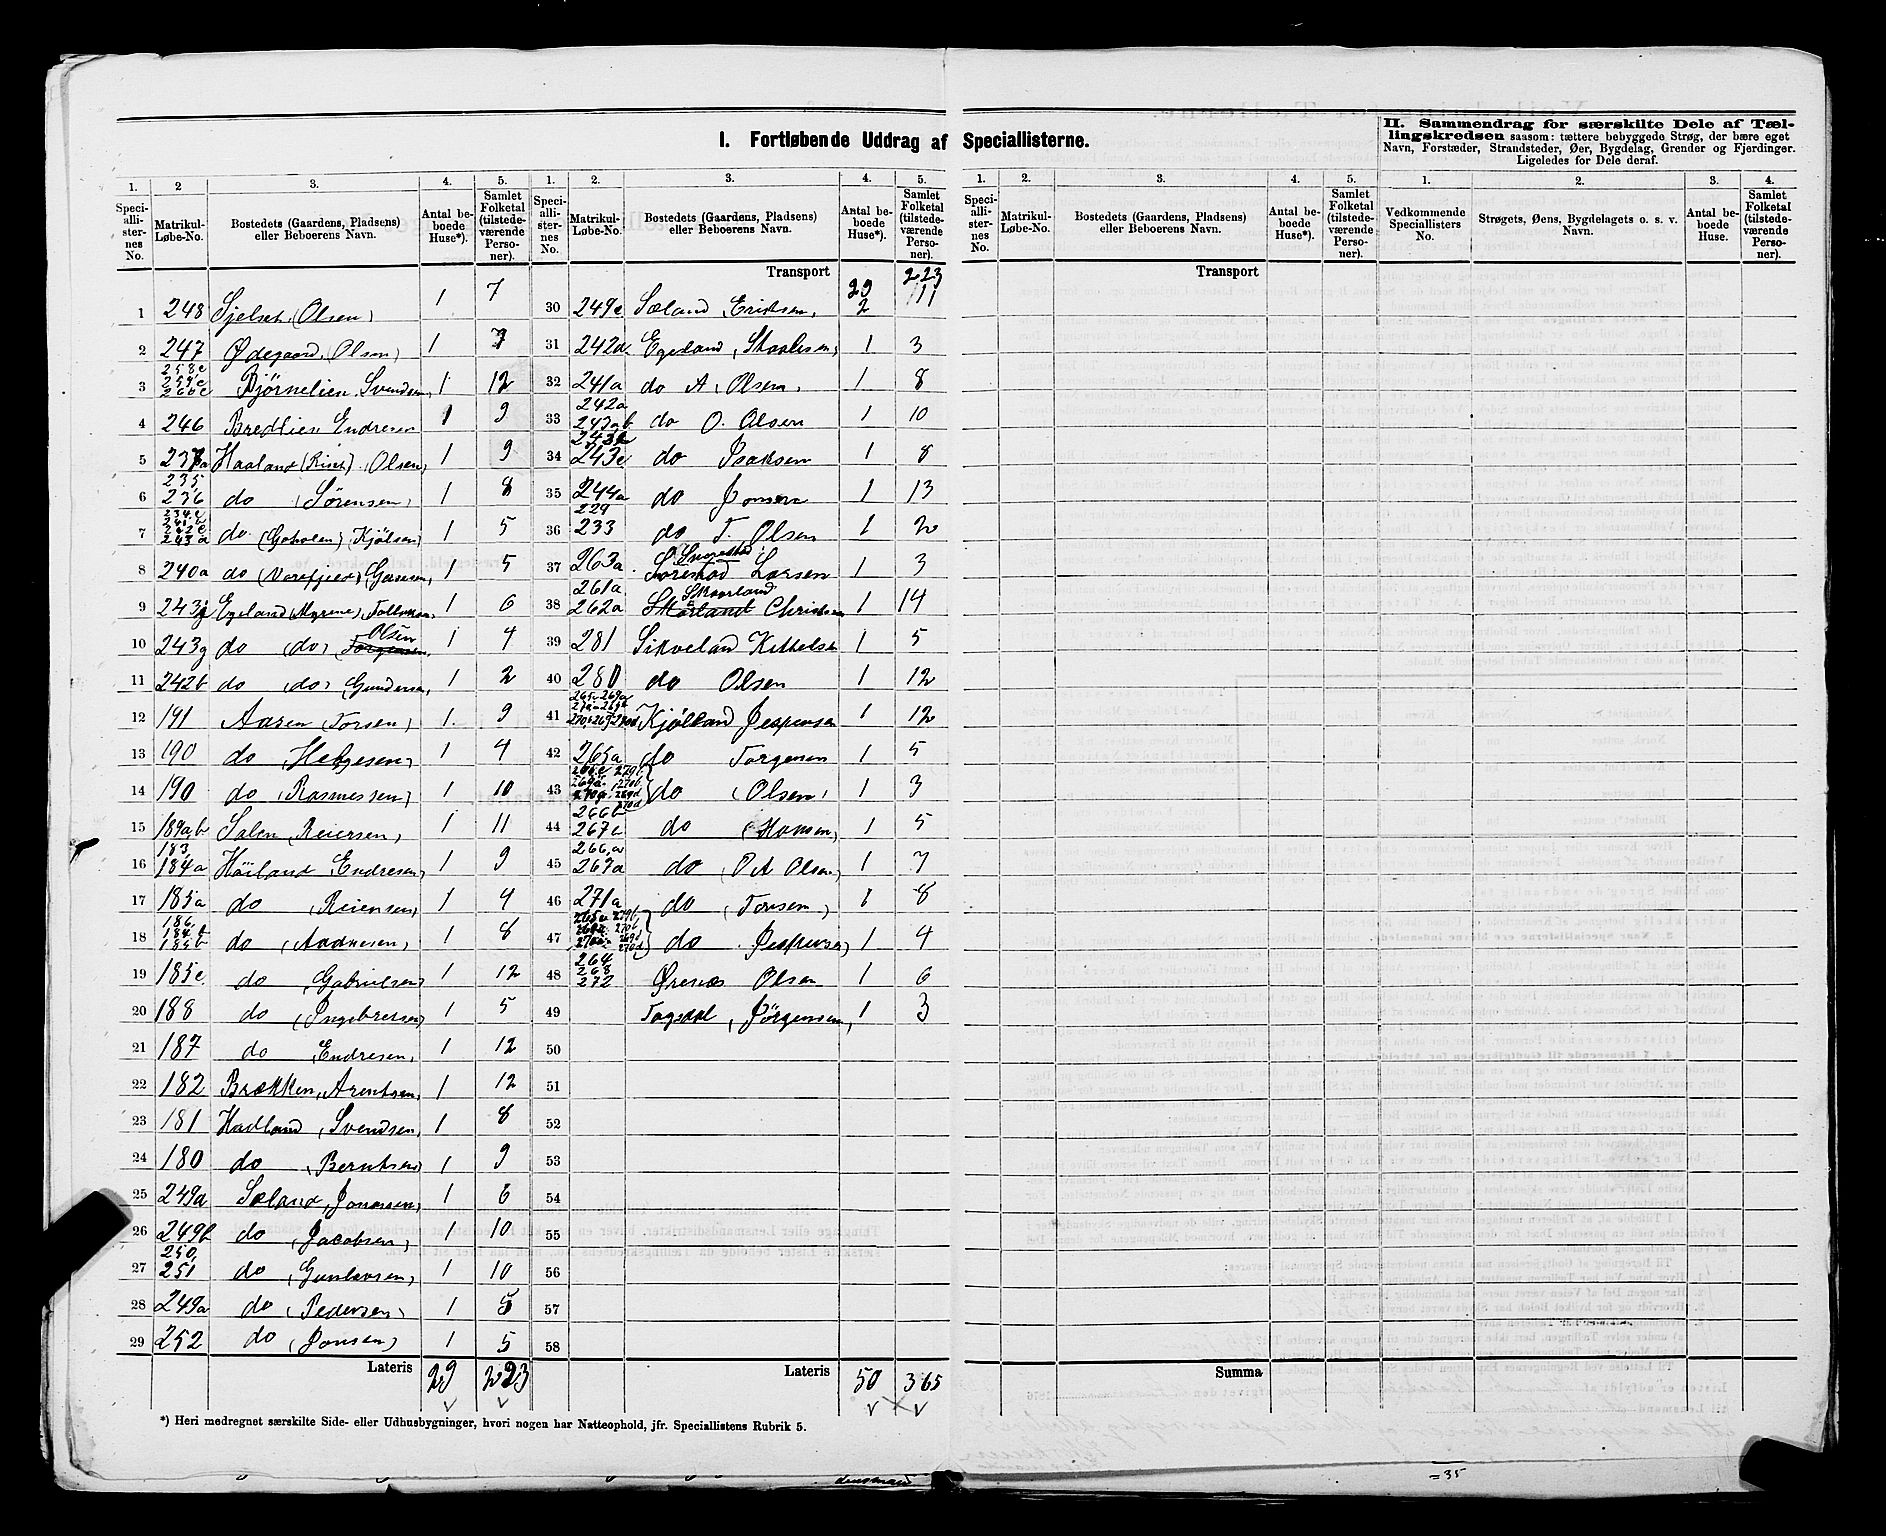 I. Fortløbende Uddrag af Speciallisterne.
II. Sammendrag for særskilte Dele af Tæl-
lingskredsen saasom: tættere bebyggede Strøg, der bære eget
Navn, Forstæder, Strandsteder, Øer, Bygdelag, Grender og Fjerdinger.
Ligeledes for Dele deraf.
1. 2 3. 4. 5. 1. 2. 3. 4. 5. 1. 2. 3. 4. 5. 1. 2. 3. 4.
Speci-alli-ster-nes No. Matrikul-Løbe-No. Bostedets (Gaardens, Pladsens) eller Beboerens Navn. Antal be-boede Huse*). Samlet Folketal (tilstede-værende Perso-ner).
Speci-alli-ster-nes No. Matrikul-Løbe-No. Bostedets (Gaardens, Pladsens) eller Beboerens Navn. Antal be-boede Huse*). Samlet Folketal (tilstede-værende Perso-ner).
Speci-alli-ster-nes No. Matrikul-Løbe-No. Bostedets (Gaardens, Pladsens) eller Beboerens Navn. Antal be-boede Huse*). Samlet Folketal (tilstede-værende Perso-ner).
Vedkommende Speciallisters No. Strøgets, Øens, Bygdelagets o. s. v. Navn. Antal be-boede Huse. Samlet Folketal (tilstede-værende Perso-ner).
1 248 Sjelset (Olsen) 1 7
2 247 Ødegaard (Olsen) 1 7
3 258c 259c 260c Bjørnelien Svendsen, 1 12
4 246 Bredlien Endresen 1 9
5 237a Haaland (Riset) (Olsen) 1 9
6 235 236 do (Sørensen) 1 8
7 242c 243a do (Kjølsen) 1 5
8 240a do 1 5
9 243 Egeland (Myrene) 1 6
10 243g do (do) Olsen 1 4
11 242b do (do) Gundersen, 1 2
12 191 Aasen (Torsen) 1 9
13 190 do (Helgesen) 1 4
14 190 do (Rasmussen) 1 10
15 189a,b Salen Reiersen, 1 11
16 183, 184a Höiland Endresen) 1 9
17 185a do (Reiersen) 1 4
18 186, 184b 185b do (Aadnesen) 1 8
19 185c do Gabrielsen) 1 12
20 188 do (Ingebretsen) 1 5
21 187 do Endresen, 1 12
22 182 Brækken, Arentsen, 1 12
23 181 Hadland (Svendsen, 1 8
24 180 do (Berntsen) 1 9
25 249a Sæland, Jonassen, 1 6
26 249b do (Jacobsen) 1 10
27 250, 251 do (Gunlavsen) 1 10
28 249a do (Pedersen) 1 5
29 252 do (Jonsen) 1 5
Lateris 29 223
Transport 29 223
30 249c Sæland Eriksen, 2 11
31 242d Egeland, Staalesen, 1 3
32 241a do A. Olsen, 1 8
33 242a 243b do O. Olsen 1 10
34 243e do Isaksen 1 8
35 244a do Jonsen 1 13
36 229 233 do T. Olsen 1 2
37 263a Svorestad Larsen 1 3
38 261a 262a Skaarland Skårland Christensen 1 14
39 281 Sikveland Kittelsen 1 5
40 280 do Olsen 1 12
41 Kjølland Jespersen 1 12
42 265a do Torgersen 1 5
43 do (Olsen) 1 3
44 266b 267c do (Hansen) 1 5
45 266,a 267a do (O A Olsen) 1 7
46 271a do (Torsen) 1 8
47 do Jespersen) 1 4
48 264 268 272 Ørenæs Olsen 1 6
49 Togsdal (Jörgensen, 1 3
50
51
52
53
54
55
56
57
58
Lateris 50 365
Transport
Summa
*) Heri medregnet særskilte Side- eller Udhusbygninger, hvori nogen har Natteophold, jfr. Speciallistens Rubrik 5.
=35